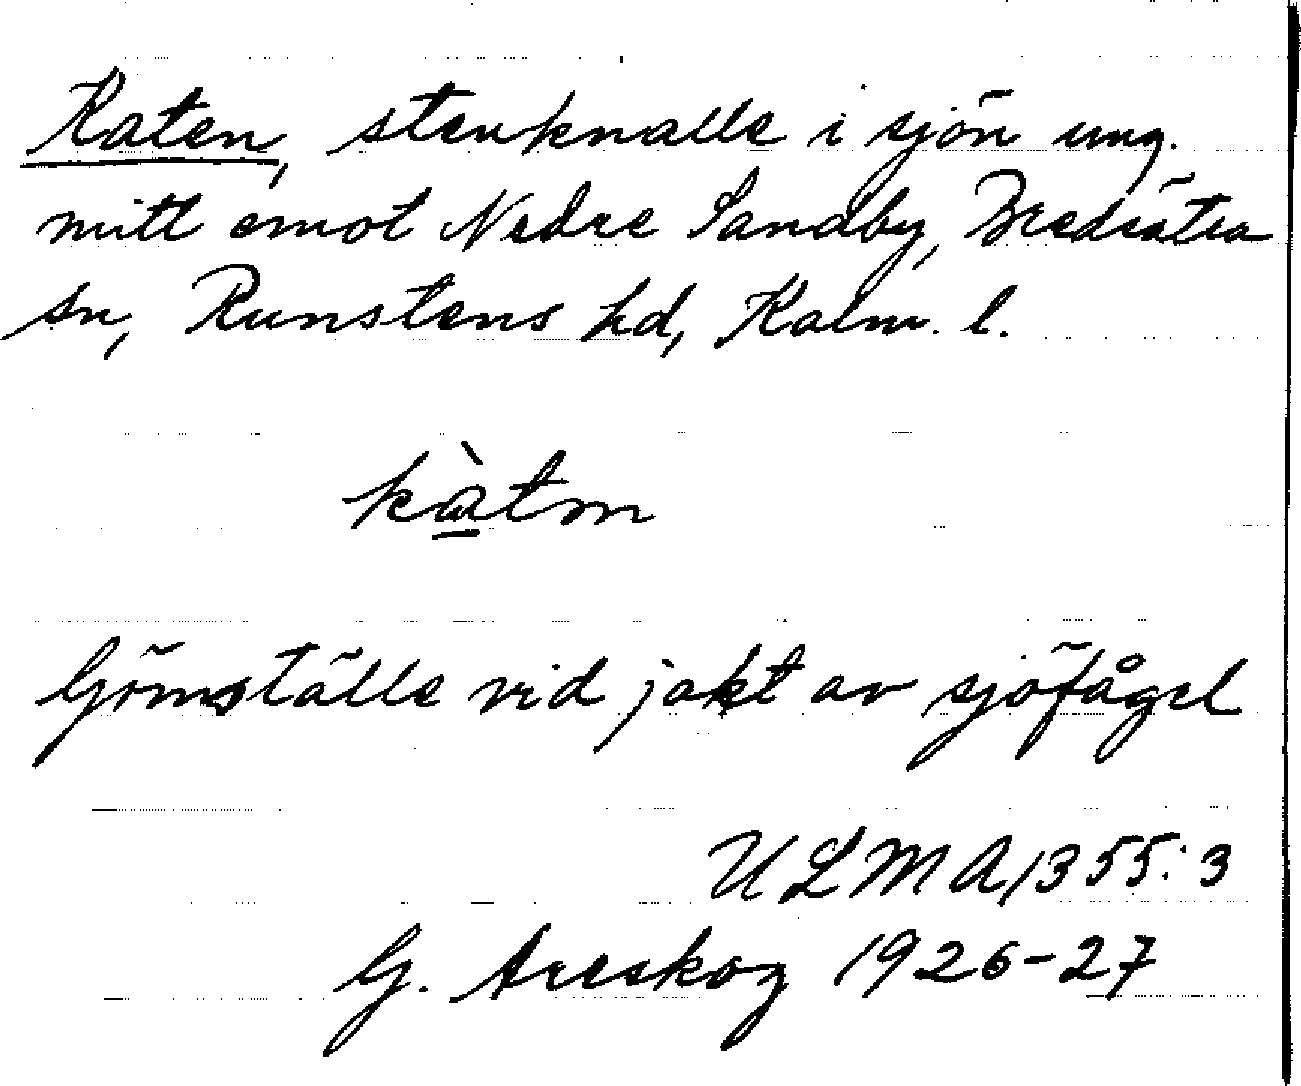 Katen, stenknalle i sjön ung.
mitt emot Nedre Sandby, Bredsätra
sn, Runstens hd, Kalm. l.
kàtm
Gömställe vid jakt av sjöfågel
ULMA 1355:3
G. Areskog 1926-27